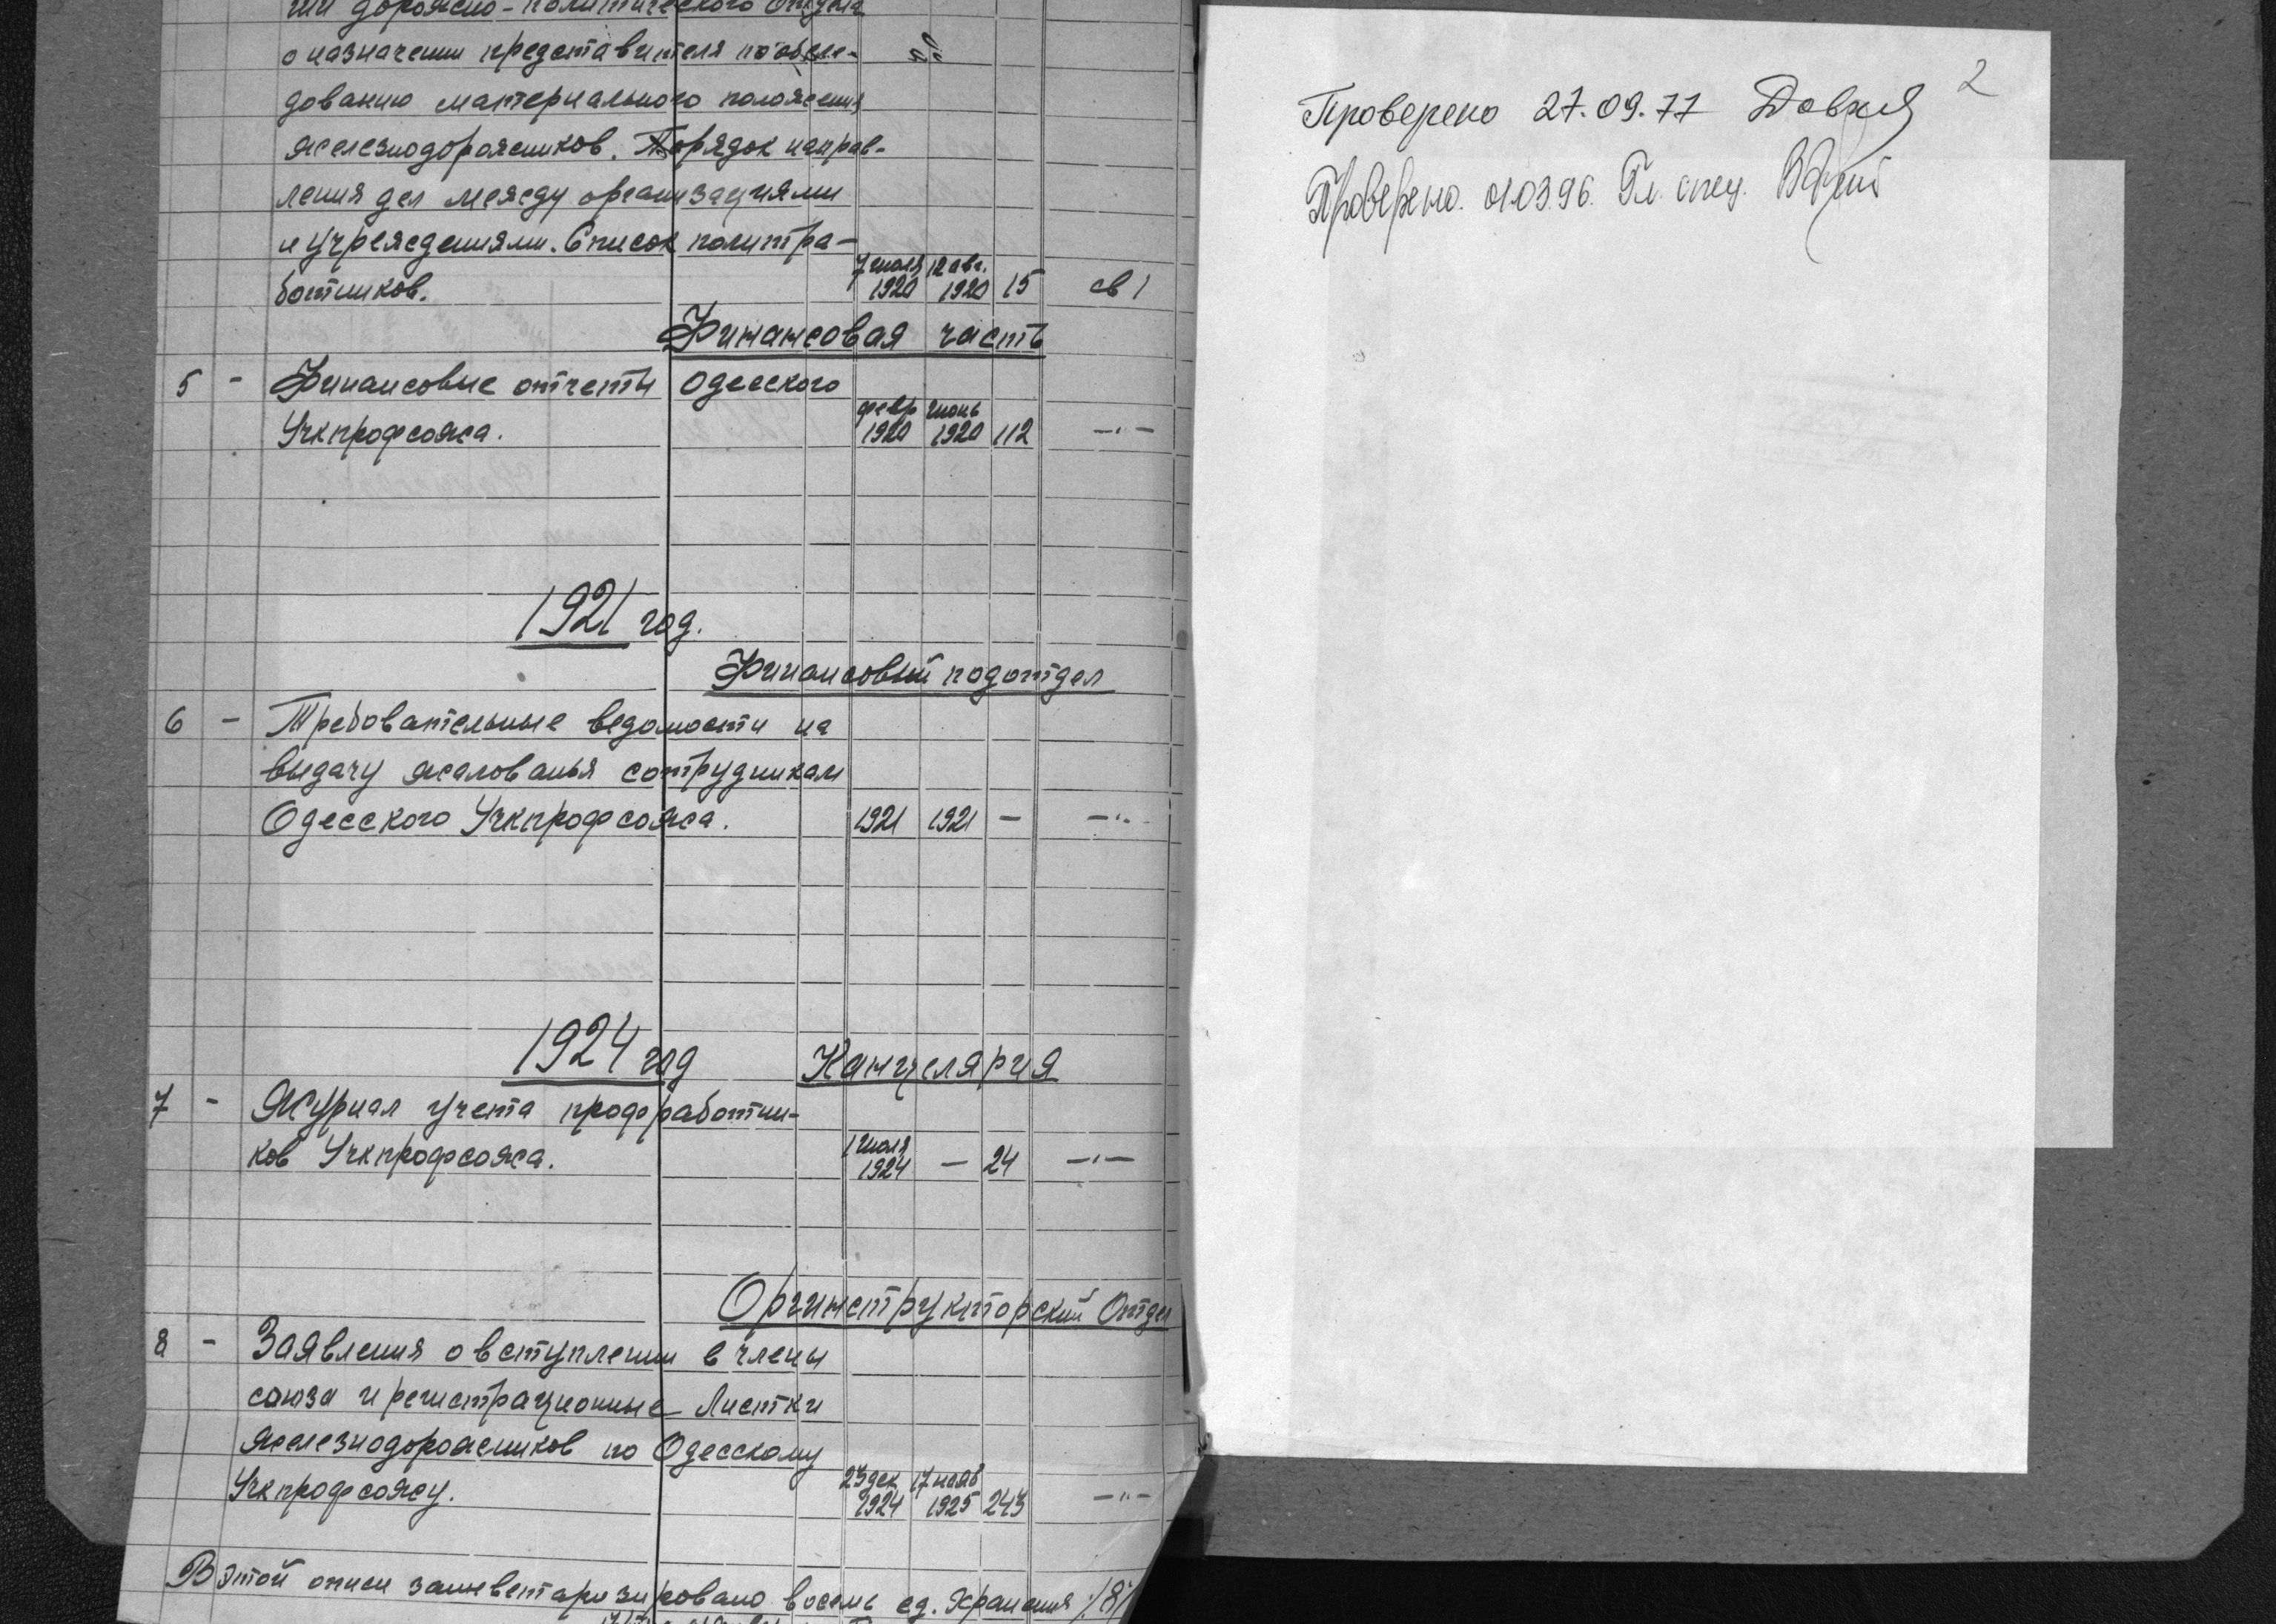 ции дорожно-политического отдела
о назначении представителя по обсле-
дованию материального положения
железнодорожников. Порядок направ-
ления дел между организациями
и учреждениями. Список политра-
ботников.
7 июля 1920 12 авг. 1920 15 св 1
Финансовая часть
5 - Финансовые отчеты Одесского
Учкпрофсожа. февр 1920 июнь 1920 112 -"-
1921 год.
Финансовый подотдел
6 - Требовательные ведомости на
выдачу жалованья сотрудникам
Одесского Учкпрофсожа. 1921 1921 - -"-
1924 год Канцелярия
7 - Журнал учета профработни-
ков Учкпрофсожа. 1 июля 1924 - 24 -"-
Оргинструкторский Отдел
8 - Заявления о вступлении в члены
союза и регистрационные листки
железнодорожников по Одесскому
Учкпрофсожу. 23 дек 1924 17 нояб 1925 243 -"-
В этой описи заинвентаризировано восемь ед. хранения /8/
2
Проверено 27.09.77
Проверено. 01.03.96. Гл. спец.